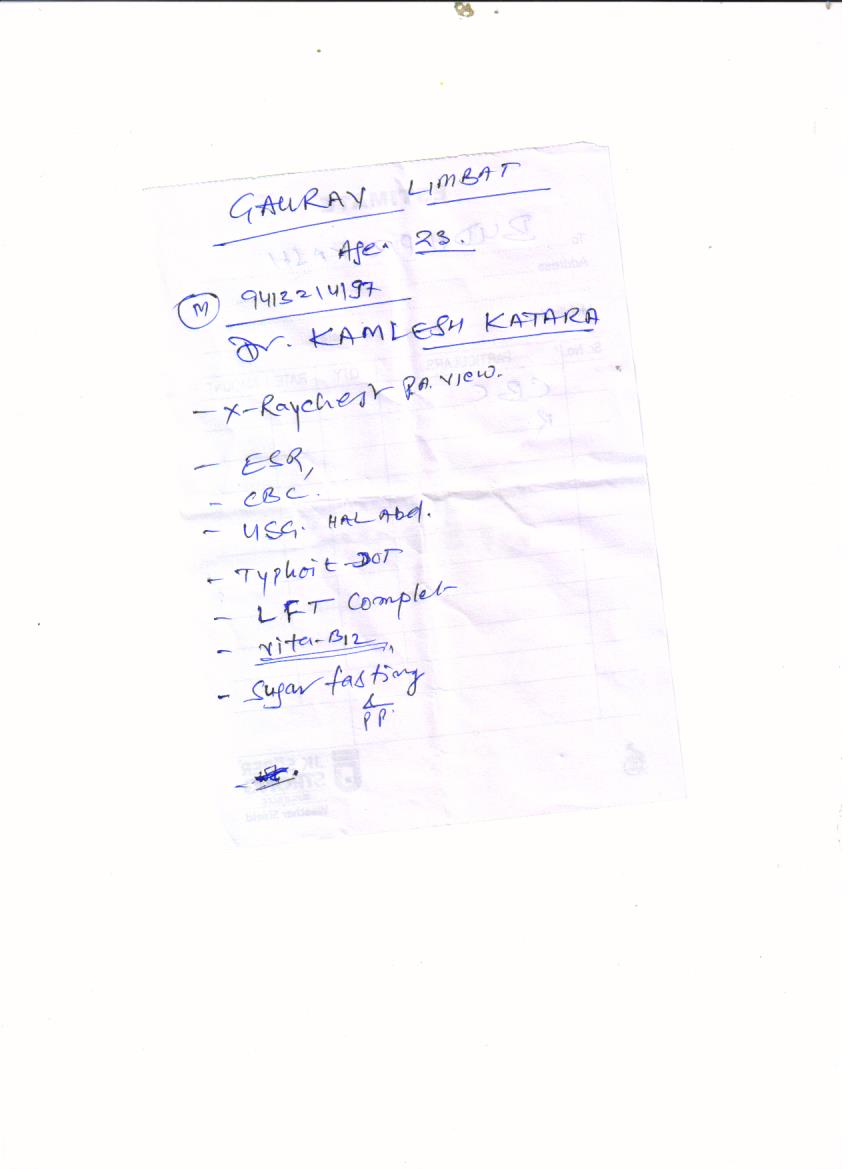 GAURAV LIMBAT
Age. 23.
M 9413214197
Dr. KAMLESH KATARA
- X-Raychest P.A. view.
- ESR,
- CBC.
- USG. Abd.
- Typhoit-DOT
- LFT Complet
- vita-B12
- Sugar fasting
&
PP.